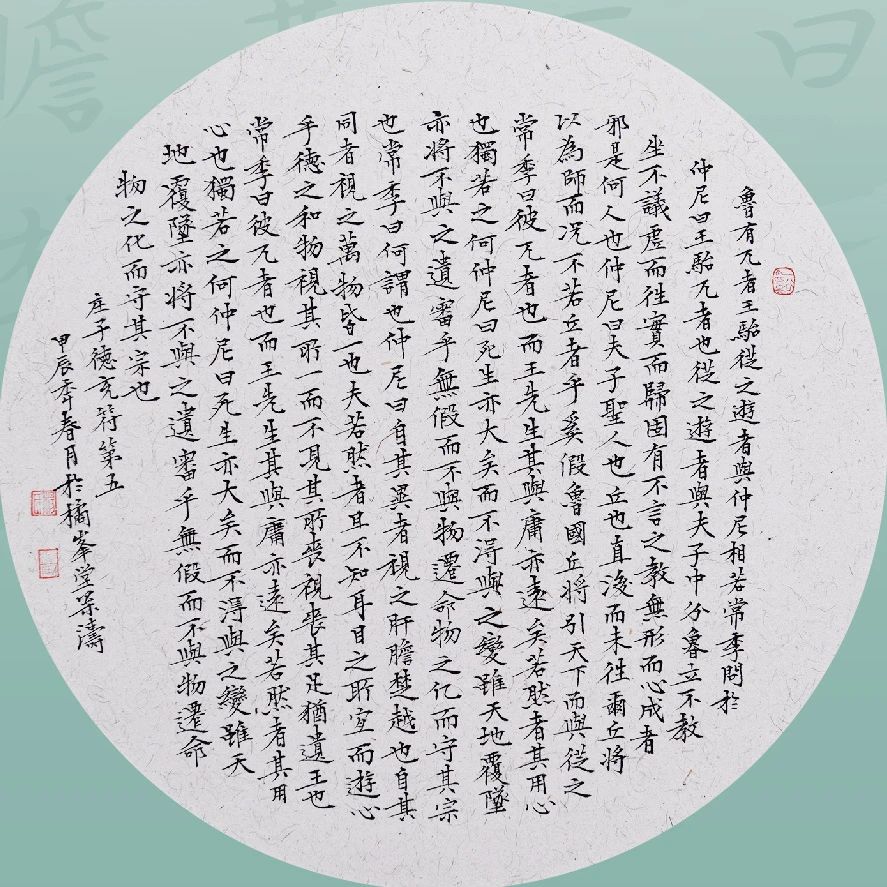 魯有兀者王駘從之遊者與仲尼相若常季問於
仲尼曰王駘兀者也從之遊者與夫子中分魯立不教
坐不議虛而往實而歸固有不言之教無形而心成者
邪是何人也仲尼曰夫子聖人也丘也直後而未往爾丘將
以為師而況不若丘者乎奚假魯國丘將引天下而與從之
常季曰彼兀者也而王先生其與庸亦遠矣若然者其用心
也獨若之何仲尼曰死生亦大矣而不得與之變雖天地覆墜
亦將不與之遺審乎無假而不與物遷命物之化而守其宗
也常季曰何謂也仲尼曰自其異者視之肝膽楚越也自其
同者視之萬物皆一也夫若然者且不知耳目之所宜而遊心
乎德之和物視其所一而不見其所喪視喪其足猶遺土也
常季曰彼兀者也而王先生其與庸亦遠矣若然者其用
心也獨若之何仲尼曰死生亦大矣而不得與之變雖天
地覆墜亦將不與之遺審乎無假而不與物遷命
物之化而守其宗也
庄子德充符第五
甲辰季春月於橘峯堂濤